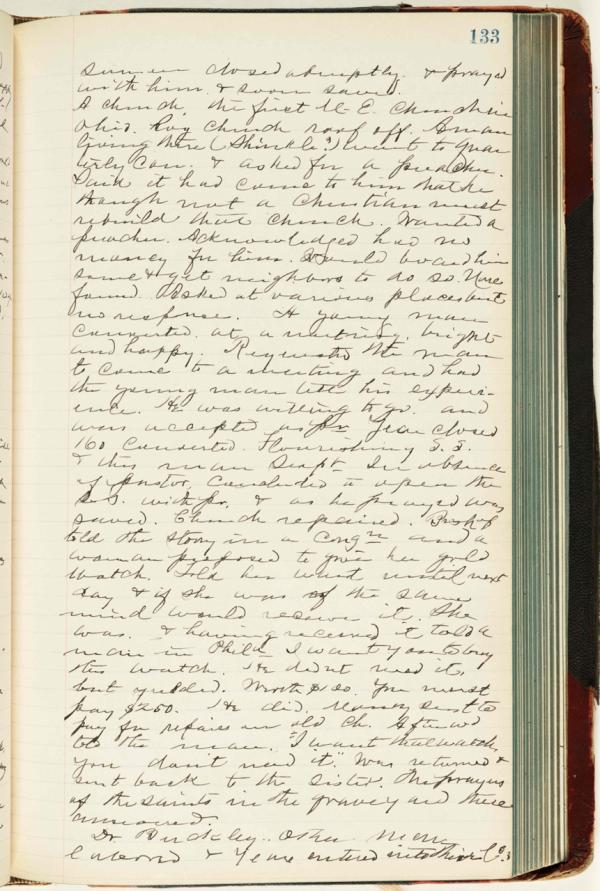 133
closed abruptly. & prayed
with him. & soon saved.
A church, the first M. E. Church in
Ohio. church roof off. A man
living there (Shinkle?) went to Quar
terly Con. & asked for a preacher.
Said it had come to him that he
though not a Christian must
rebuild that church. Wanted a
preacher. Acknowledged had no
money for him. Would board him
some & get neighbors to do so. None
found. Asked at various places but
no response. A young man
converted at a meeting. bright
and happy. Requested the man
to come to a meeting and had
the young man tell his experi-
ence. He was willing to go. and
was accepted as pr. Year closed
160 converted. Flourishing S. S.
& this man Supt. In absence
of pastor, concluded to open the
S. S. with pr. & as he prayed was
saved. Church repaired. Bishop
told the story in a Congn and a
woman proposed to give her gold
watch. Told her wait until next
day & if she was of the same
mind would receive it. She
was. & having received it told a
man in Phila I want you to buy
this watch. He didn't need it,
but yielded. Worth $ You must
pay $200. He did. Money sent to
pay for repairs on old Ch. Afterwd
to the man. "I want that watch,
you don't need it". Was returned &
sent back to the sister. The prayers
of the saints in the graveyard there
answered.
Dr. Buckley. Other men
labored & ye are entered into their